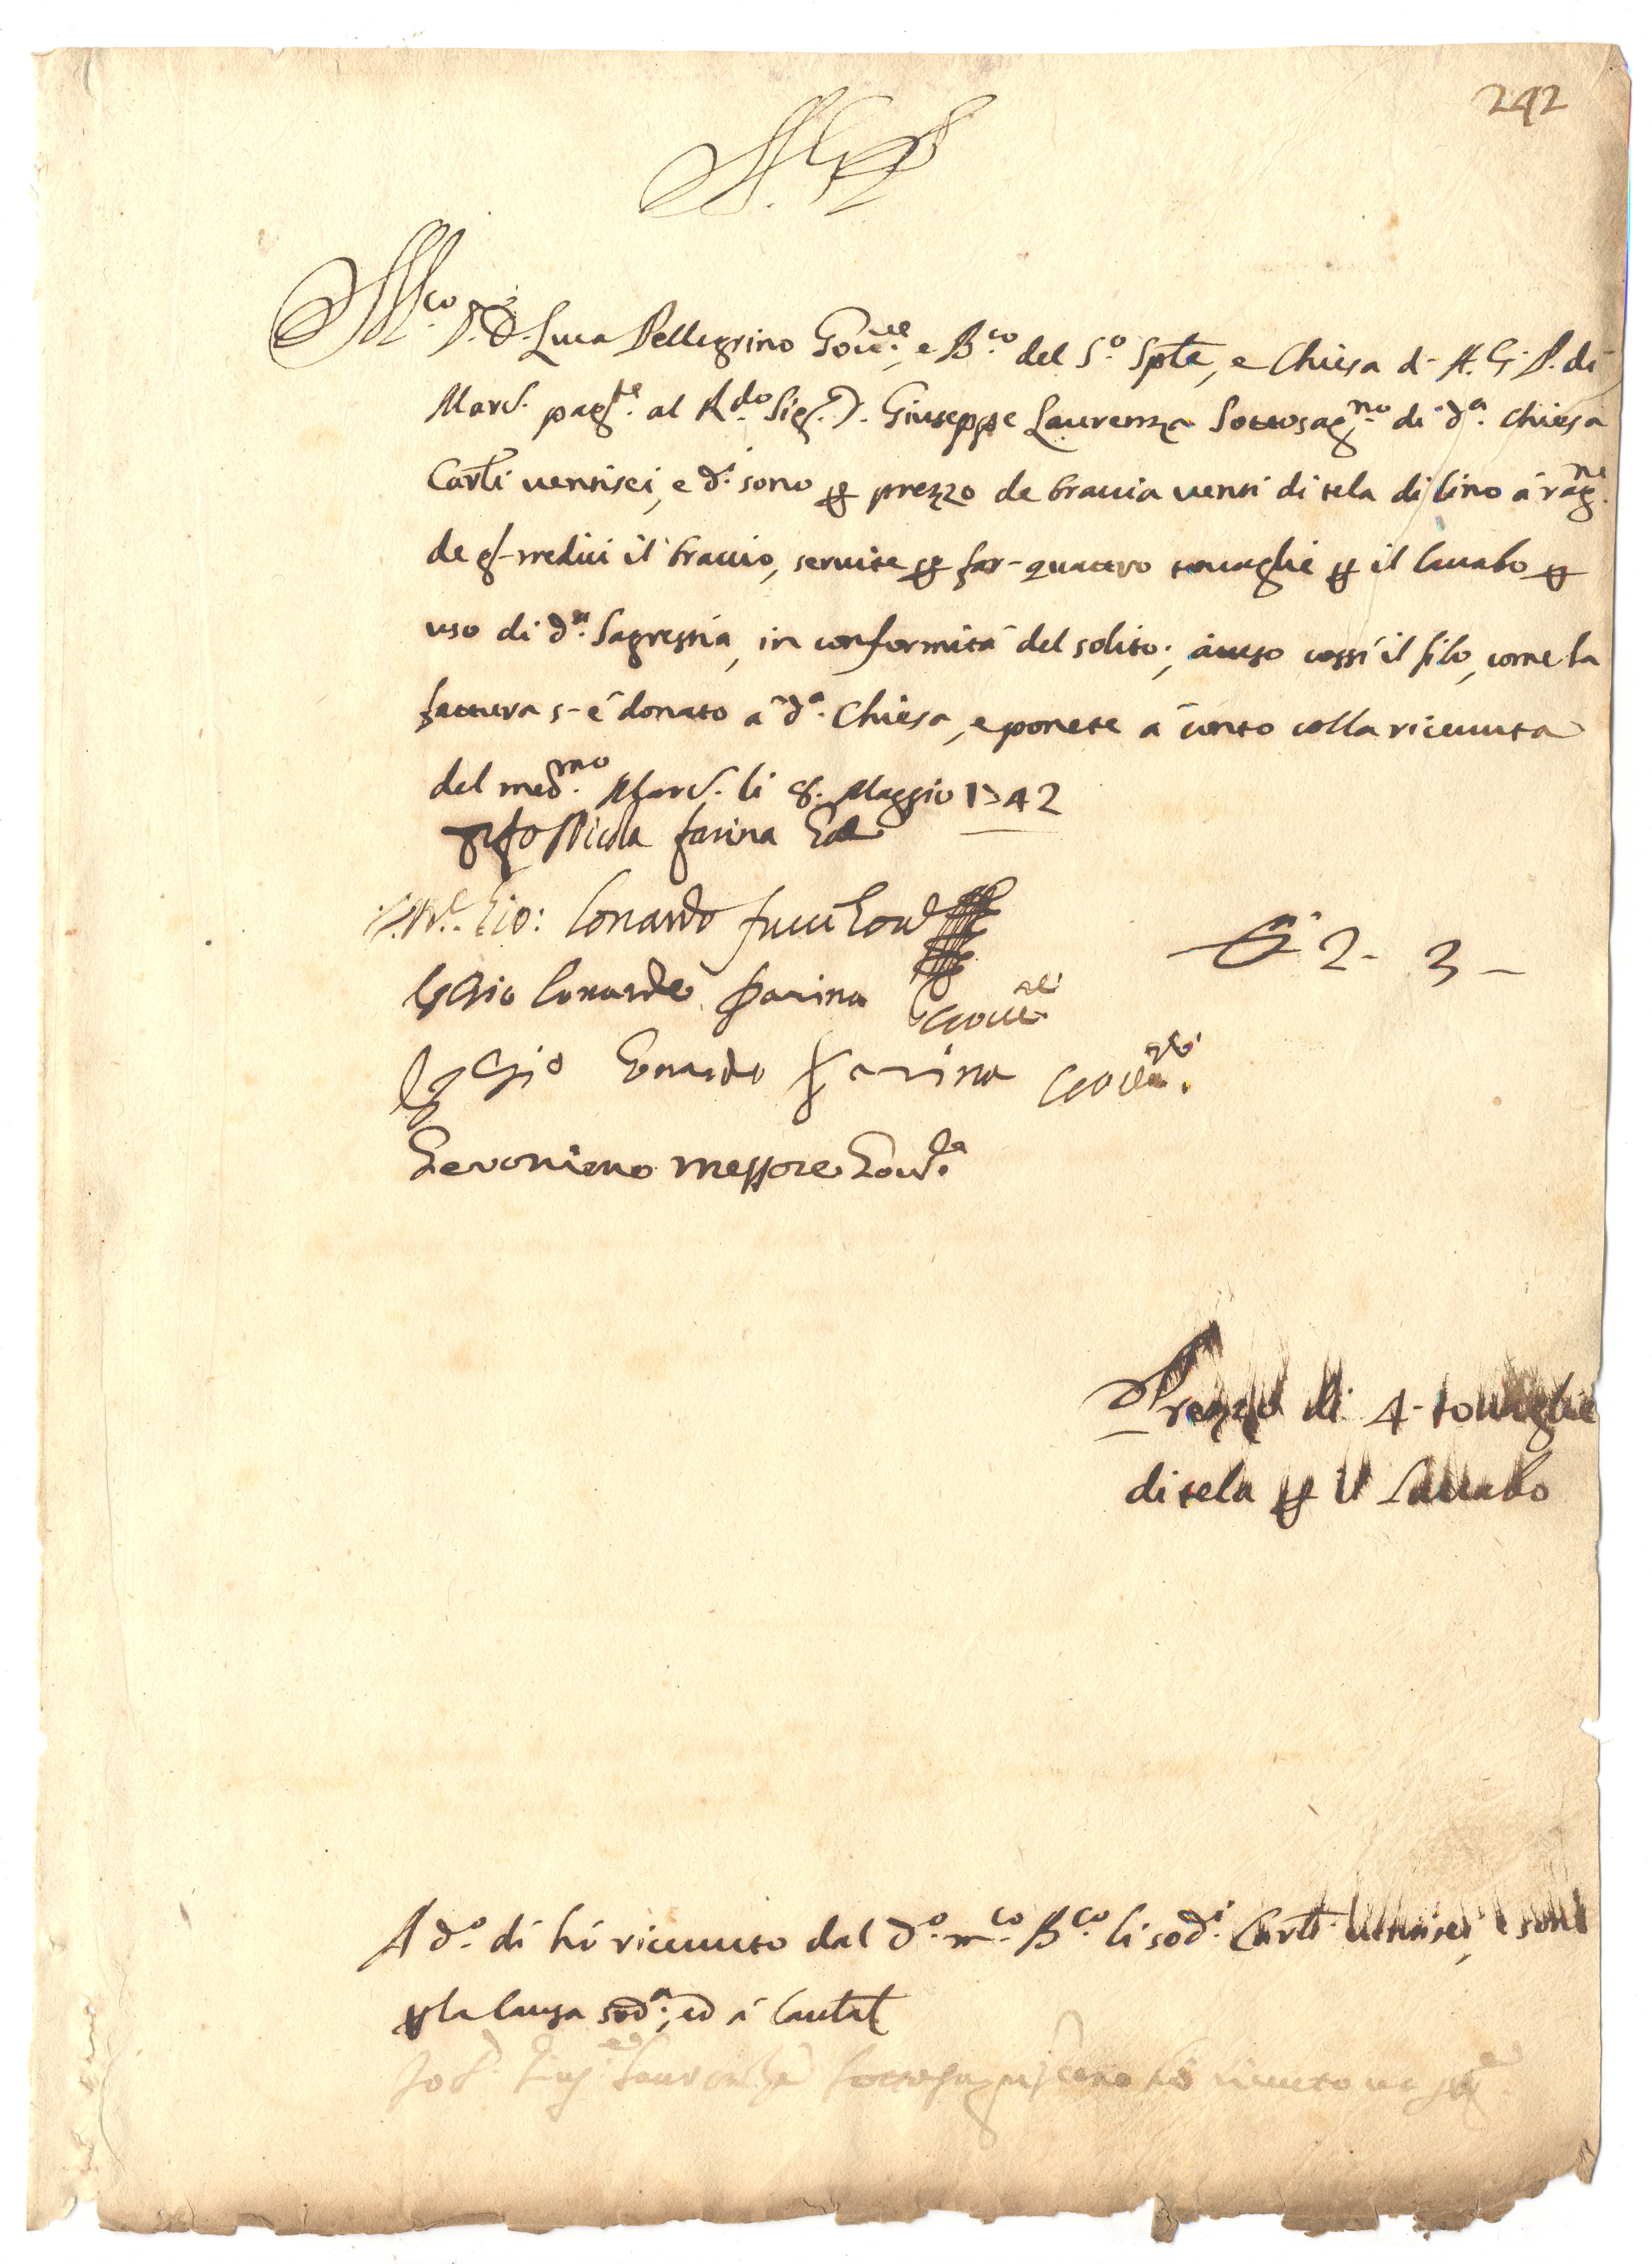 242
A. G. P.
M.co D. D. Luca Pellegrino Gov.re, e B.co del S.o Spte, e Chiesa d- A. G. P. di
Marc. pag.te al R.do Sig.r D. Giuseppe Laurenza Sottosag.no di d.a Chiesa
Carli ventisei, e d.i sono per prezzo de braccia venti di tela di lino à rag.ne
de g- tredici il braccio, servite per far- quattro tovaglie per il lavabo per
uso di d.a Sagrestia, in conformità del solito; atteso cossì il filo, come la
fattura s- è donato à d.a Chiesa, e ponete à conto colla ricevuta
del med.mo Marc. li 8. Maggio 1742
Nicola farina
Gio: Lonardo fucci Gov.
Gio Lonardo farina Gov.re
Gio Lonardo farina Gov.re
Geronimo messore Gov.re
D.i 2- 3 –
Prezzo di 4- tovaglie
di tela per il Lavabo
A d.o di hò ricevuto dal d.o m.co B.co li sod.i Carli ventisei, e sono
per la causa sod.a, ed à cautel
Io D. Gius.e Laurenza sottosagristano hò ricevuto